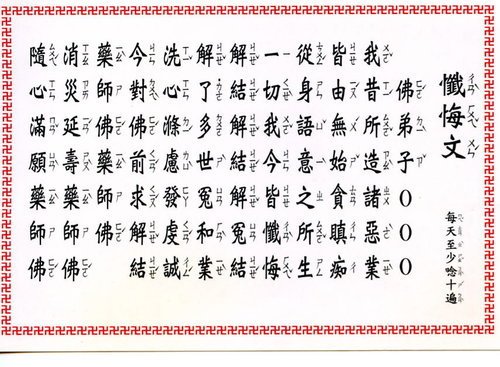 懺悔文
每天至少唸十遍
佛弟子〇〇〇
我昔所造諸惡業
皆由無始貪瞋痴
從身語意之所生
一切我今皆懺悔
解結解結解冤結
解了多世冤和業
洗心滌慮發虔誠
今對佛前求解結
藥師佛藥師佛
消災延壽藥師佛
隨心滿願藥師佛